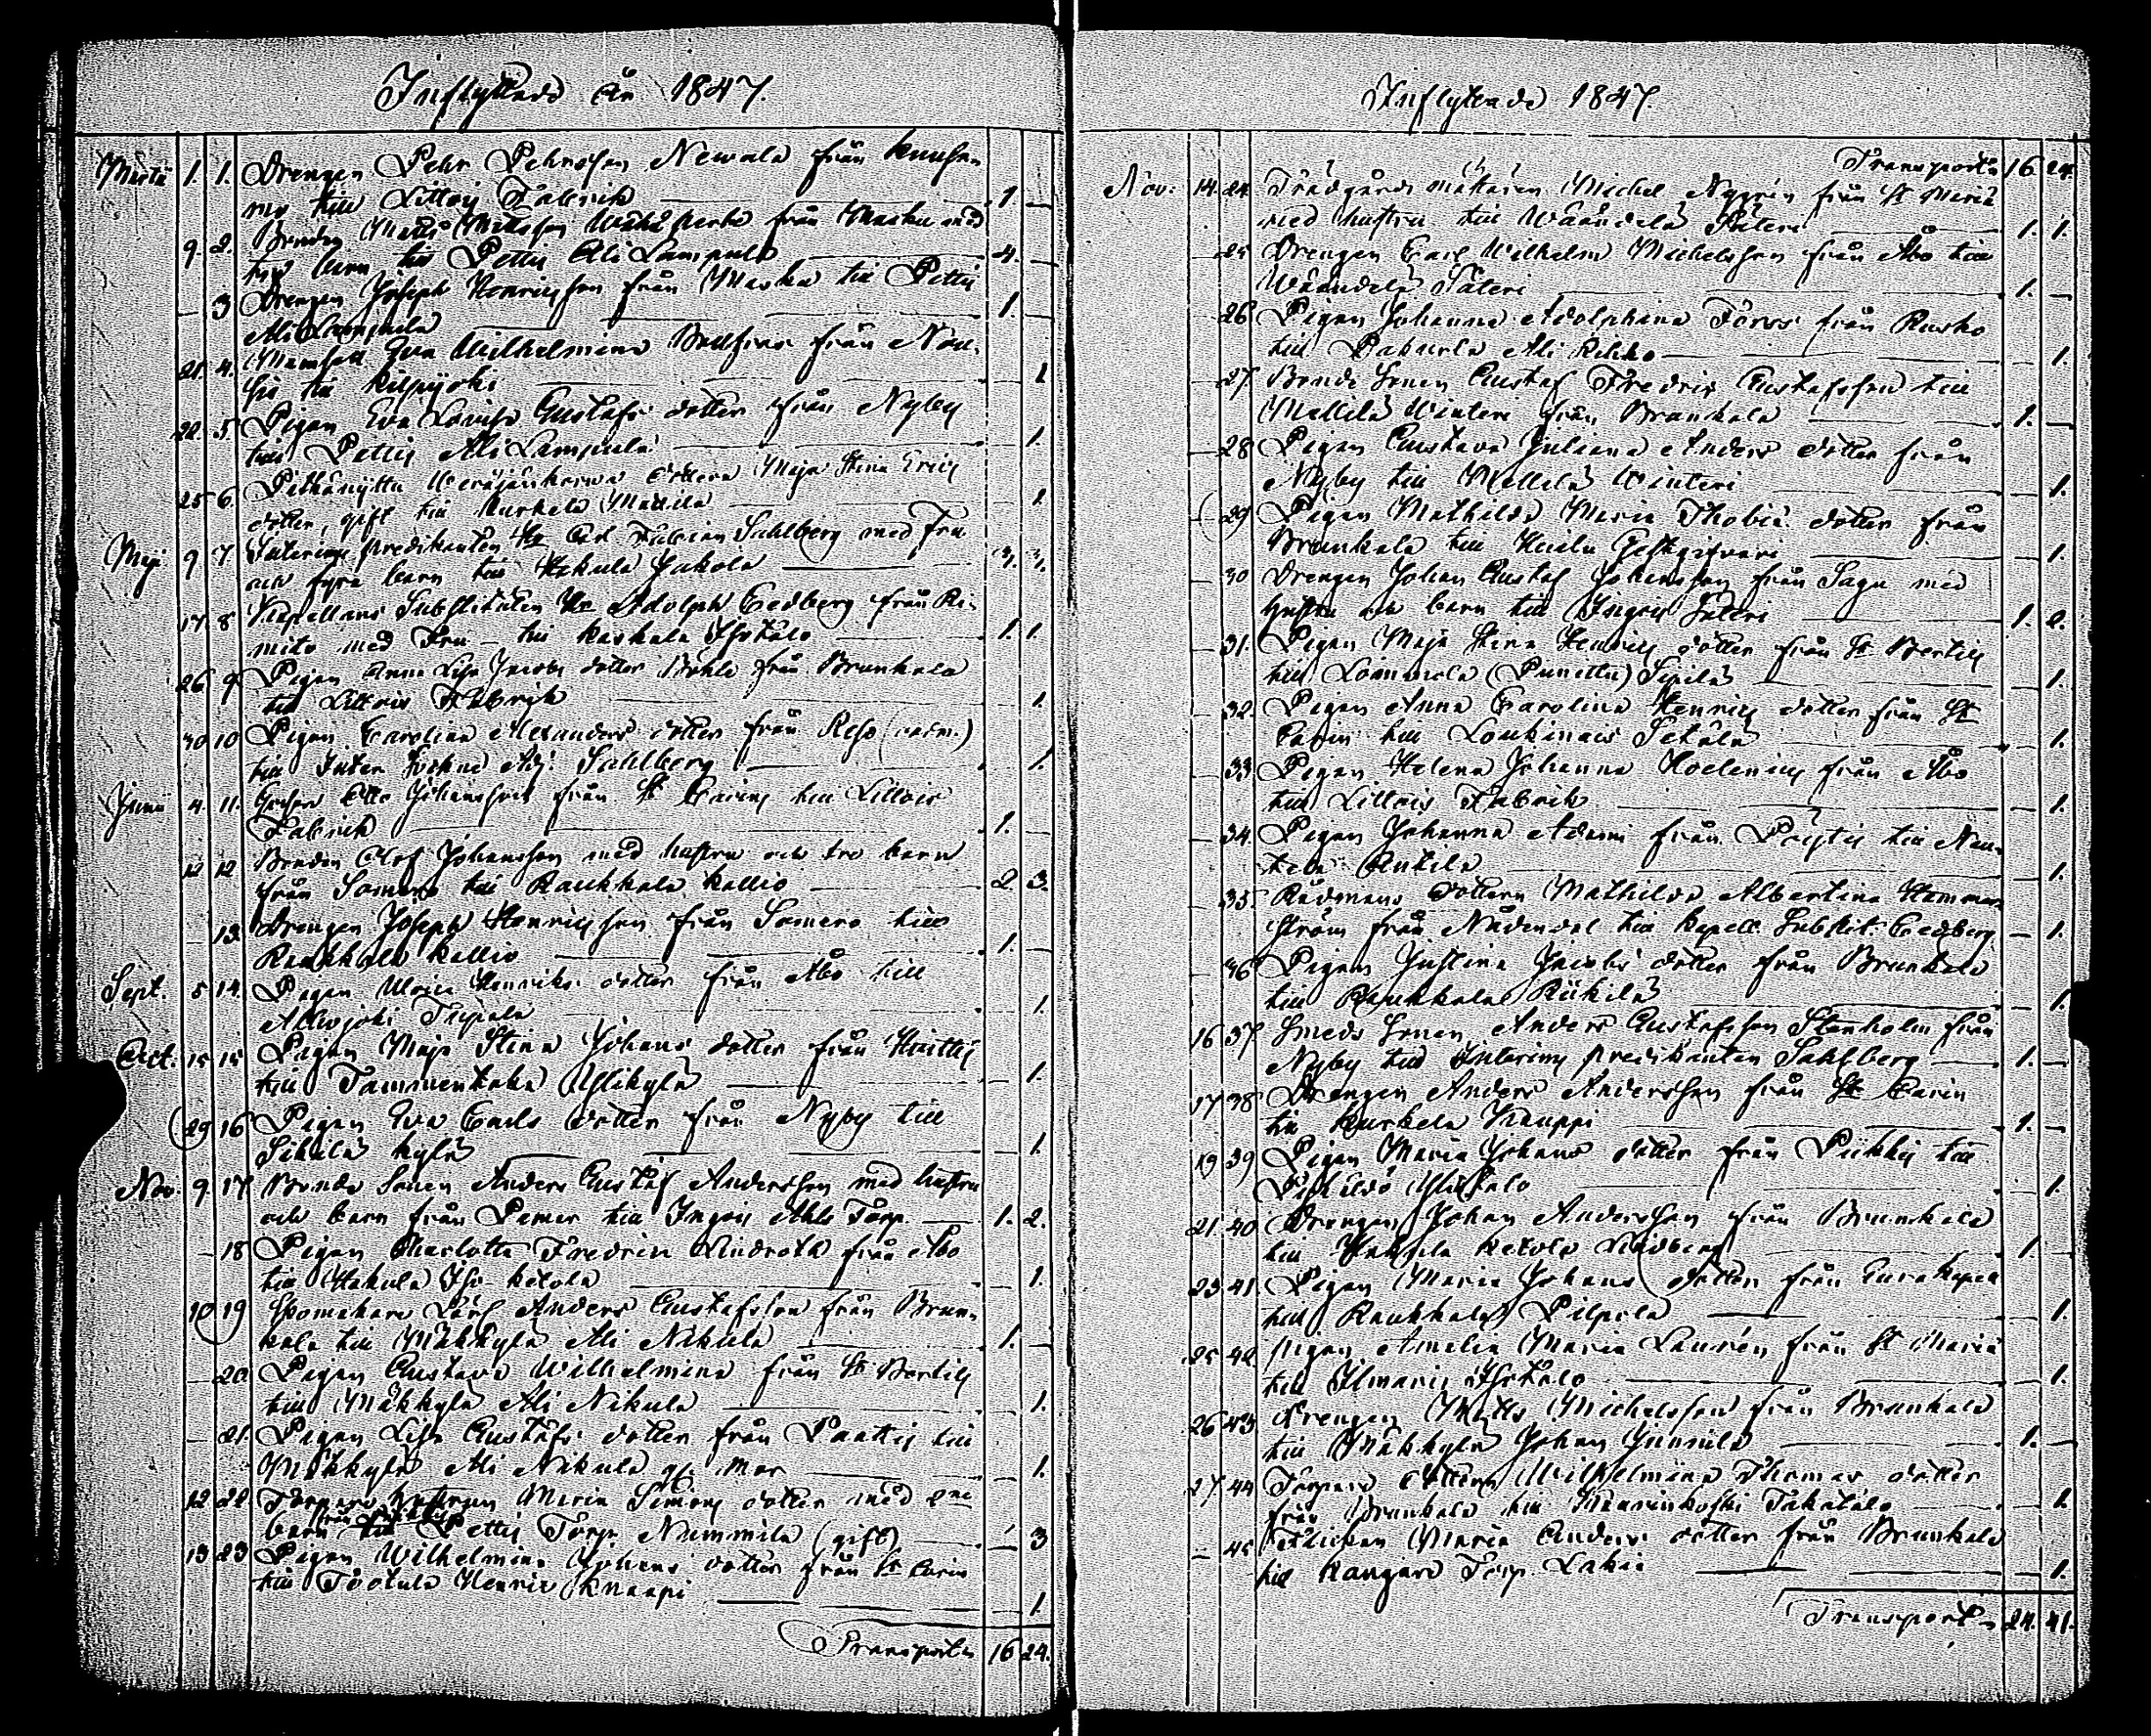 Inflyttade år 1847.
Martii 1. 1. Drengen Pehr Pehrsson Newala från
till Littois Fabrik 1. —
9. 2. Bonden Matts Mattsson från Masku med
barn till Pettis Ali Lampula 4. —
— 3 Drengen Joseph Henricsson från Masku till Pettis
Ali Lampula 1. —
21. 4. Mamsell Eva Wilhelmina från Nou-
sis till Kilpijoki — 1
22. 5 Pigan Eva Lovisa Gustafs dotter från Nyby
till Pettis Ali Lampula — 1.
25 6. dottern Maja Stina Erics
dotter, gift till Kurkela Mattila — 1.
Maji 9 7. Interims predikanten Hr Carl Fabian Sahlberg med Fru
och fyra barn till Hakula Jakola 3. 3.
17 8 Kapellans Substituten Hr Adolph Cedberg från Ri-
mito med Fru — till Kaskala Isotalo 1. 1.
26 9 Pigan Anna Lisa Jacobs dotter från Brunkala
till Littois Fabrik — 1.
30 10 Pigan Carolina Alexanders dotter från Reso
till Sahlberg — 1.
Junii 4. 11. Otto Johansson från St Carins till Littois
Fabrik 1. —
12 12 Bonden Olof Johansson med hustru och tre barn
från Somero till Raukkala Kallio 2. 3.
— 13. Drengen Joseph Henricsson från Somero till
Raukkala Kallio 1. —
Sept. 5 14. Pigan Ulrica Henriks dotter från Åbo till
— 1.
Oct. 15 15 Pigan Maja Stina Johans dotter från
till Tammentaka Ylikylä — 1.
29 16 Pigan Eva Carls dotter från Nyby till
kylä — 1.
Nov. 9. 17 Bonde Sonen Anders Gustaf Andersson med hustru
och barn från Pemar till Ingois Torp. 1. 2.
— 18 Pigan Charlotta Fredrica Lindroth från Åbo
till Hakula Iso Ketola — 1.
10 19 Anders Gustafsson från Brun-
kala till Mäkkylä Ali Nikula 1. —
— 20. Pigan Gustava Wilhelmina från St Bertils
till Mäkkylä Ali Nikula — 1.
— 21. Pigan Lisa Gustafs dotter från Paattis till
Mäkkylä Ali Nikula — 1.
12 22 Maria Simons dotter med
barn Pettis Torp. Nummila (gift) — 3
13 23 Pigan Wilhelmina Johans dotter från St Carins
till Tootula Henric Knaapi — 1.
Transport 16 24.
Inflyttade 1847
Transport 16 24.
Nov. 14. 24. Trädgårds mästaren Michel Nygrén från St Mariä
med hustru till Wäändelä Säteri 1. 1.
— 25 Drengen Carl Wilhelm Michelsson från Åbo till
Wäändelä Säteri 1. —
— 26 Pigan Johanna Adolphina Forss från Rusko
till Pakurla Ali Kikko — 1.
— 27. Bonde Sonen Gustaf Fredric Gustafsson till
Mellilä Winteri från Brunkala 1. —
— 28 Pigan Gustava Juliana Anders dotter från
Nyby till Mellilä Winteri — 1.
— 29 Pigan Mathilda Maria Thobiä dotter från
Brunkala till Gestgifveri — 1.
— 30 Drengen Johan Gustaf Johansson från Sagu med
hustru och barn till Ingois Säteri 1. 2.
— 31. Pigan Maja Stina Henrics dotter från St Bertils
till Loimmola (Punittu) Sipilä — 1.
— 32. Pigan Anna Carolina Henrics dotter från St
Carin till Loukinais Setälä — 1.
— 33 Pigan Helena Johanna Hoelenius från Åbo
till Littois Fabrik — 1.
— 34. Pigan Johanna Adami från Pöytis till Nau-
tela Anttila — 1.
— 35. Rådmans dottern Mathilda Albertina Hammar-
ström från Nådendal till Kapell. Substit. Cedberg — 1.
— 36 Pigan Justina Jacobs dotter från Brunkala
till Raukkala Riikilä — 1.
16 37 Smeds Sonen Anders Gustafsson Stenholm från
Nyby till Interims predikanten Sahlberg 1. —
17 38 Drengen Anders Andersson från St Carin
till Kurkela Kauppi 1. —
19 39 Pigan Maria Johans dotter från Piikkis till
Ylistalo — 1.
21. 40 Drengen Johan Andersson från Brunkala
till Hakula Ketola 1. —
23. 41. Pigan Maria Johans dotter från Eura Kapell
till Raukkala Pilpola — 1.
25 42. Pigan Amelia Maria Laurén från St Mariä
till Ilmaris Isotalo — 1.
26 43 Drengen Matts Michelsson från Brunkala
till Mäkkylä Johan Junnila 1. —
27. 44 Torpare dottern Wilhelmina Thomas dotter
från Brunkala till Takatalo — 1.
— 45 Flickan Maria Anders dotter från Brunkala
till Kangars Torp. — 1.
Transport 24. 41.